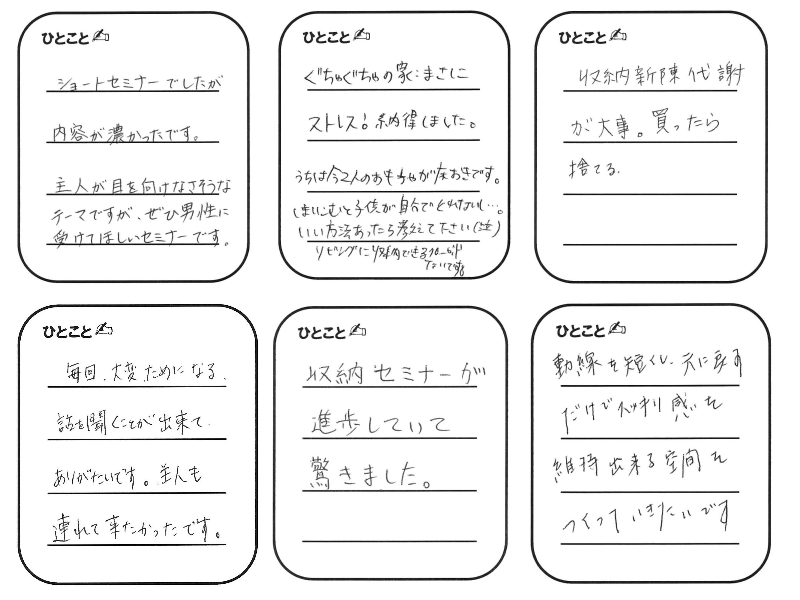 ひとこと✍
ショートセミナーでしたが
内容が濃かったです。
主人が目を向けなさそうな
テーマですが、ぜひ男性に
受けてほしいセミナーです。
ひとこと✍
ぐちゃぐちゃの家:まさに
ストレス!納得しました。
うちは今2人のおもちゃが床おきです。
しまいこむと子供が自分でとれないし…。
いい方法あったら考えて下さい(泣)
リビングに収納できるクローゼット
ないです。
ひとこと✍
収納新陳代謝
が大事。買ったら
捨てる.
ひとこと✍
毎回、大変ためになる、
話を聞くことが出来て、
ありがたいです。主人も
連れて来たかったです。
ひとこと✍
収納セミナーが
進歩していて
驚きました。
ひとこと✍
動線を短くし、元に戻す
だけでスッキリ感を
維持出来る空間を
つくっていきたいです